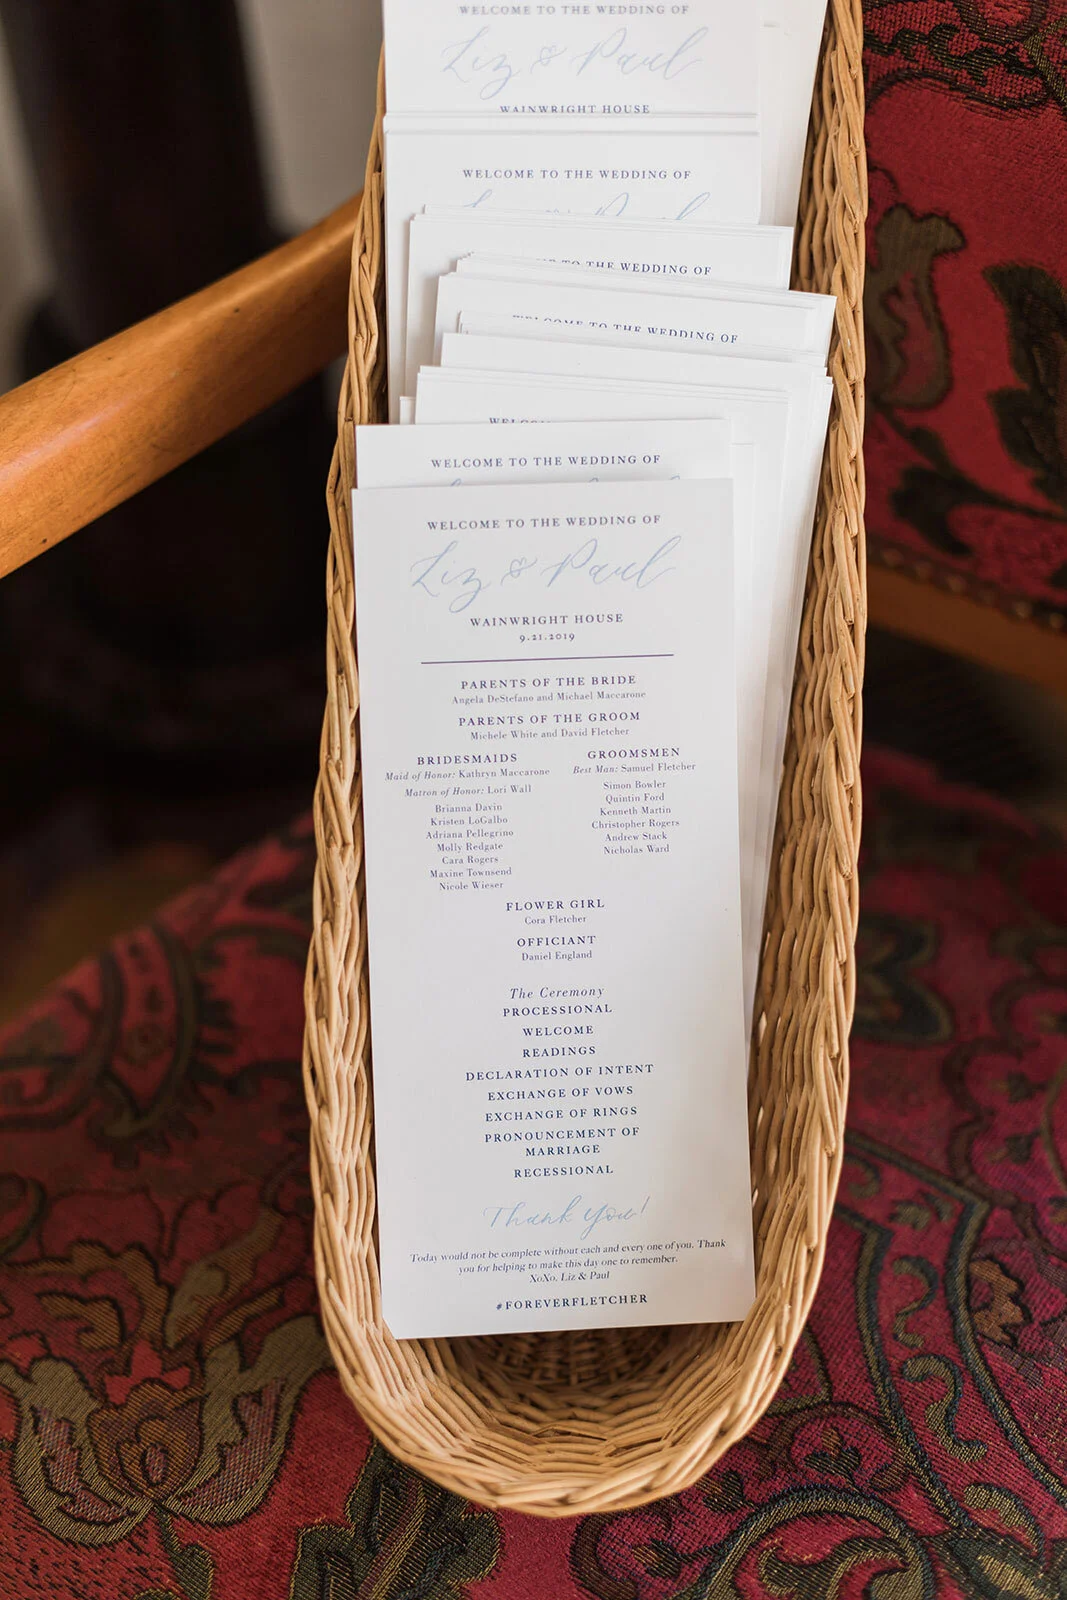 WELCOME TO THE WEDDING OF
Liz & Paul
WAINWRIGHT HOUSE
WELCOME TO THE WEDDING OF
TO THE WEDDING OF
WELCOME TO THE WEDDING OF
WELCOME TO THE WEDDING OF
WELCOME TO THE WEDDING OF
Liz & Paul
WAINWRIGHT HOUSE
9.21.2019
PARENTS OF THE BRIDE
Angela DeStefano and Michael Maccarone
PARENTS OF THE GROOM
Michele White and David Fletcher
BRIDESMAIDS
Maid of Honor: Kathryn Maccarone
Matron of Honor: Lori Wall
Brianna Davin
Kristen LoGalbo
Adriana Pellegrino
Molly Redgate
Cara Rogers
Maxine Townsend
Nicole Wieser
GROOMSMEN
Best Man: Samuel Fletcher
Simon Bowler
Quintin Ford
Kenneth Martin
Christopher Rogers
Andrew Stack
Nicholas Ward
FLOWER GIRL
Cora Fletcher
OFFICIANT
Daniel England
The Ceremony
PROCESSIONAL
WELCOME
READINGS
DECLARATION OF INTENT
EXCHANGE OF VOWS
EXCHANGE OF RINGS
PRONOUNCEMENT OF
MARRIAGE
RECESSIONAL
Thank you!
Today would not be complete without each and every one of you. Thank
you for helping to make this day one to remember.
XoXo, Liz & Paul
#FOREVERFLETCHER